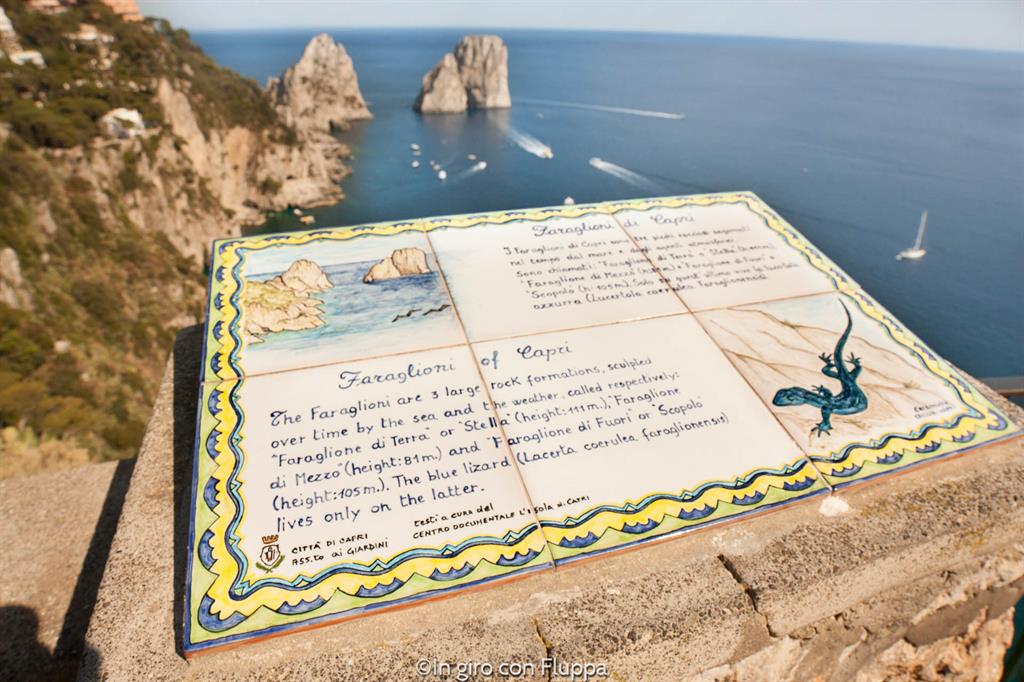 Faraglioni di Capri
I Faraglioni di Capri sono tre picchi rocciosi sagomati
nel tempo dal mare e dagli agenti atmosferici
Sono chiamati: "Faraglione di Terra" o "Stella"
"Faraglione di Mezzo" e "Faraglione di Fuori" o
"Scopolo" (h: 105m.). Solo su quest'ultimo vive la lucertola
azzurra (Lucertola coerulea Faraglionensis)
Faraglioni of Capri
The Faraglioni are 3 large rock formations, sculpted
over time by the sea and the weather, called respectively:
"Faraglione di Terra" or "Stella" (height: 111m.), "Faraglione
di Mezzo" (height: 81m) and "Faraglione di Fuori" or "Scopolo"
(height: 105m.). The blue lizard (Lacerta coerulea faraglionensis)
lives only on the latter.
CITTÀ DI CAPRI
ASS.to ai GIARDINI
testi a cura del
CENTRO DOCUMENTALE L'ISOLA di CAPRI
©In giro con Fluppa